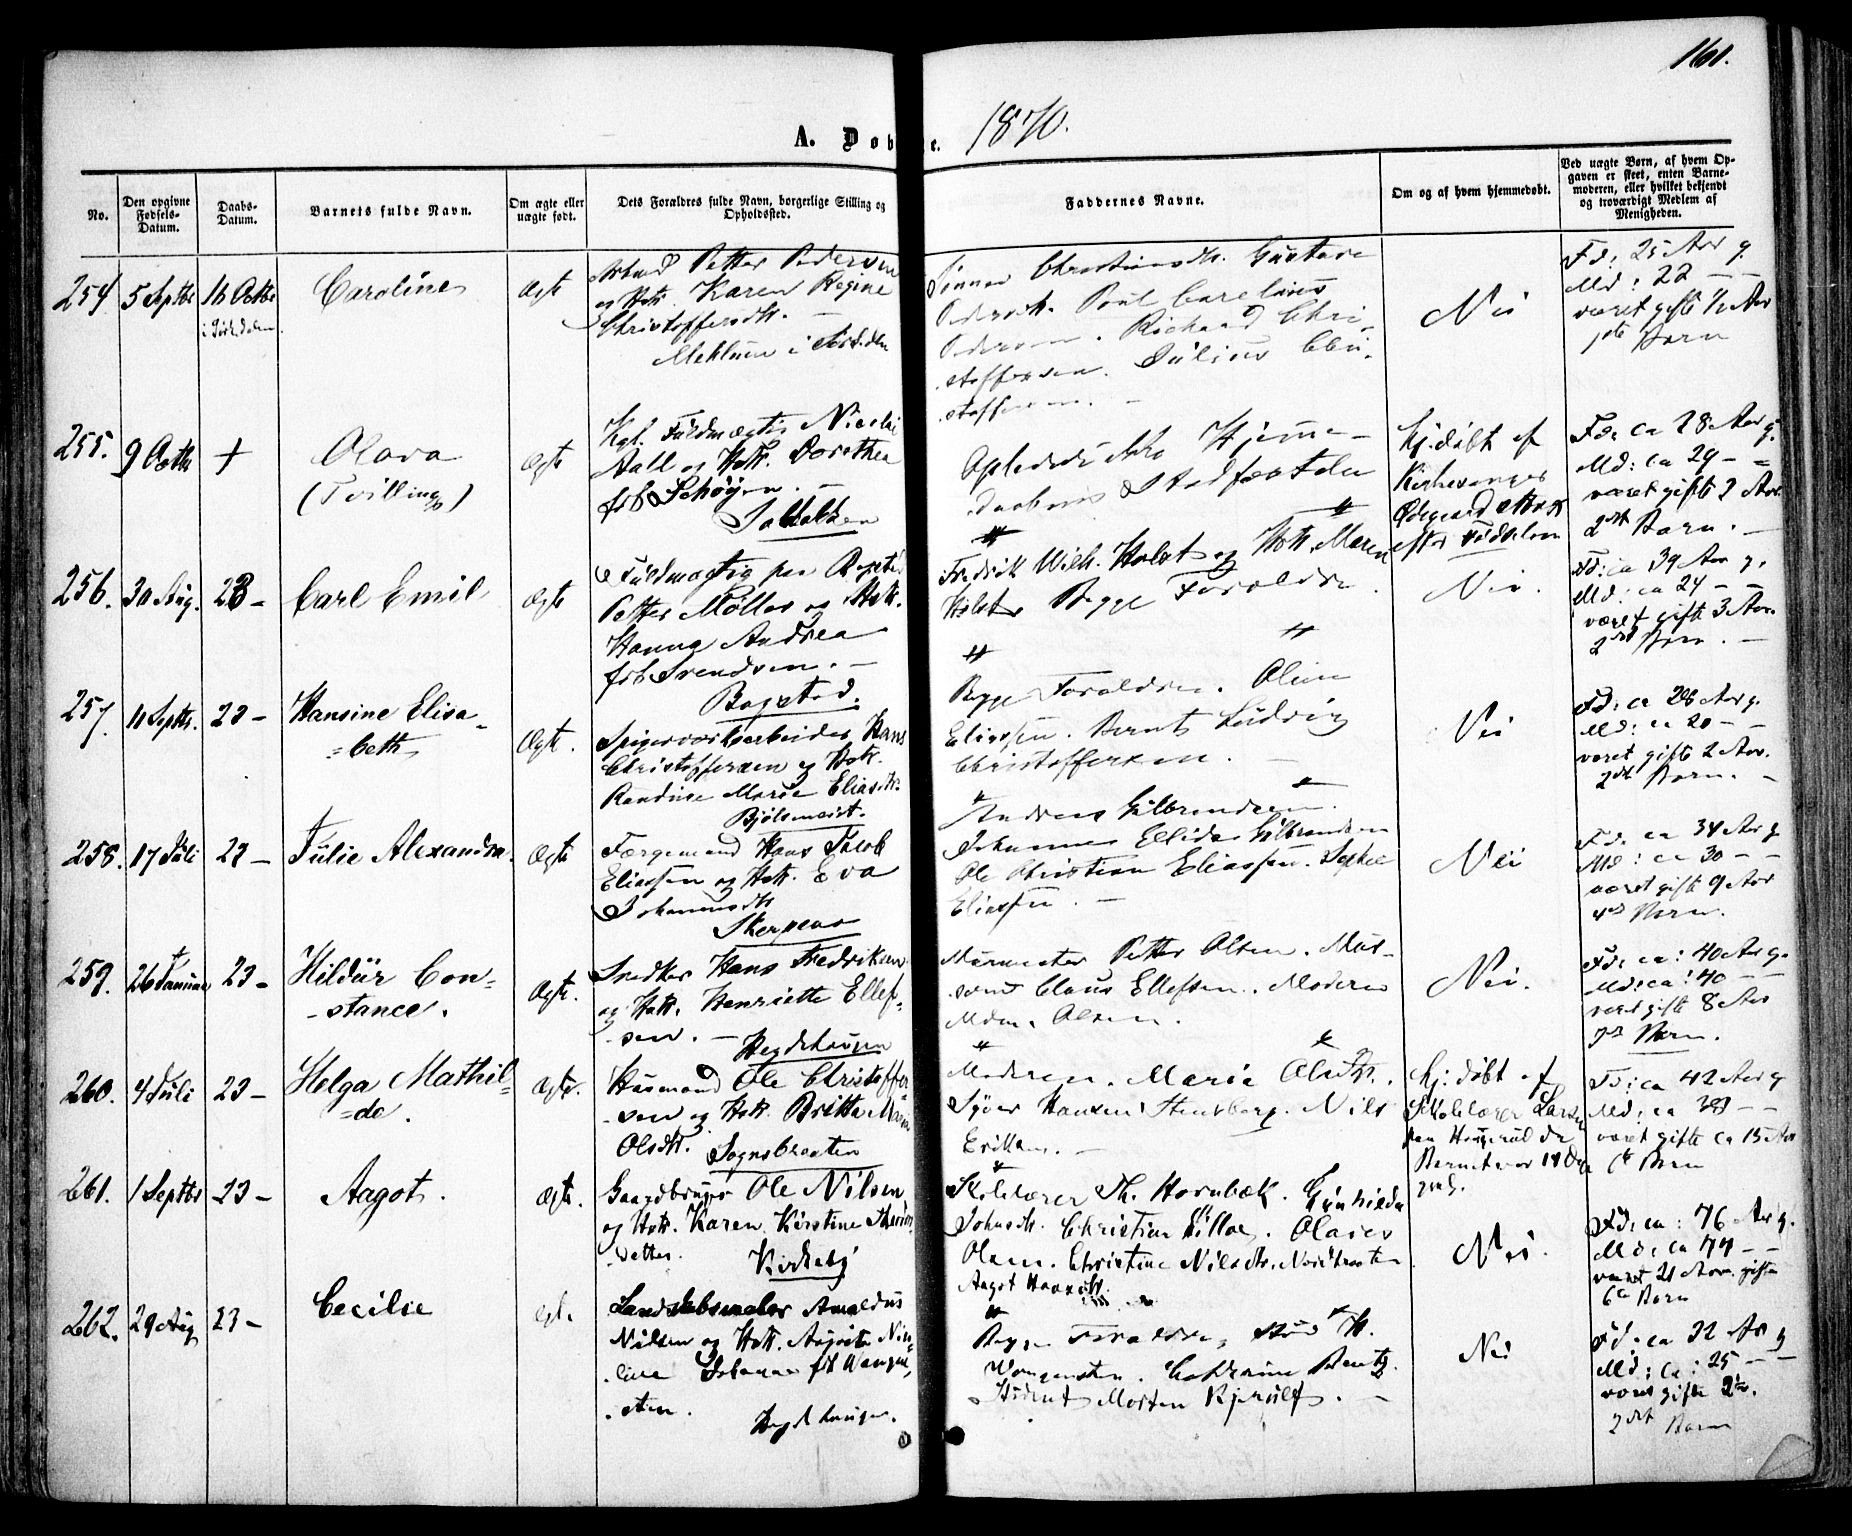 161.
A. Døb e. 1870.
No.
Den opgivne Fødsels-Datum.
Daabs-Datum.
Barnets fulde Navn.
Om ægte eller uægte født.
Dets Forældres fulde Navn, borgerlige Stilling og Opholdssted.
Faddernes Navne.
Om og af hvem hjemmedøbt.
Ved uægte Børn, af hvem Opgaven er skeet, enten Barnemoderen, eller hvilket bekjendt og troværdigt Medlem af Menigheden.
254. 5 Septbr 16 Octbr Caroline Ægte
Petter Pedersen
og Hst. Karen Regine
Christoffersdtr. —
i Sørkedalen
Christiansdtr. Gustava
Pedersdt. Poul Carelius
Pedersen. Richard Chri-
stoffersen. Julius Chri-
stoffersen. —
Nei
Fd: 25 Aar g.
Md: 22 — —
været gifte ½ Aar
1ste Barn
255. 9 Octbr + Olava
(Tvilling)
Ægte
Kgl. Fuldmægtig Nicolai
Aall og Hst. Dorothea
fdt Schøyen. —
Hjemme-
daabens Stadfæstelse
Hj. døbt af
Kirkesanger
Ødegaard strax
efter Fødselen
Fd: ca 28 Aar g.
Md: ca 29 — —
været gifte 2 Aar.
2det Barn. —
256. 30 Aug. 23 — Carl Emil Ægte
Fuldmægtig paa Bogstad
Petter Møller og Hst.
Hanna Andrea
fdt Svendsen. —
Bogstad.
Fredrik Wilh. Holst og Hst. Maren
Holst Begge Forældre.
Nei.
Fd: ca 39 Aar g.
Md: ca 24 —
været gifte 3 Aar.
2det Barn. —
257. 11 Septbr. 23 — Hansine Elisa-
-beth
Ægte.
Spigerværksarbeider Hans
Christoffersen og Hst.
Randine Marie Eliasdt.
Bjølsenveist.
Begge Forældre. Oline
Eliassen. Bernt Ludvig
Christoffersen. —
Nei
Fd: ca 26 Aar g.
Md: ca 20 — —
været gifte 2 Aar.
2det Barn. —
258. 17 Juli 23 — Julie Alexandra. Ægte
Færgemand Hans Jacob
Eliassen og Hst. Eva
Johannesdt.
Skerpens
Andreas Gulbrandsen.
Johannes Gulbrandsen
Ole Christian Eliassen. Sophie
Eliassen. —
Nei
Fd: ca 34 Aar g
Md: ca 30 — —
været gifte 9 Aar
4de Barn.
259. 26 Januar 23 — Hildur Con-
-stance.
Ægte.
Snedker Hans Fredriksen
og Hst. Henriette Ellef-
sen. —
Hegdehaugen
Murmester Petter Olsen. Mur-
svend Claus Ellefsen. Moderen
Mdm. Olsen.
Nei.
Fd: ca: 40 Aar g.
Md: ca: 40 — —
været gifte 8 Aar
7de Barn.
260. 4 Juli 23 — Helga Mathil-
-de.
Ægte.
Husmand Ole Christoffer-
sen og Hst. Britha Maria
Olsdt.
Sognsbraaten
Moderen. Marie Olsdtr.
Syver Hansen Stensberg. Nils
Eriksen. —
Hj. døbt af
Skolelærer Larsen
paa Hougerud da
Barnet var 14 Dage
gml.
Fd: ca 42 Aar g
Md: ca 38 — —
været gifte ca 15 Aar
6te Barn
261. 1 Septbr 23 — Aagot. Ægte.
Gaardbruger Ole Nilsen
og Hst. Karen Kirstine
datter.
Kirkeby
Skolelærer Th. Hornbæk. Gunhilde
Johnsdt. Christian Lilloe. Olaves
Olsen. Christine Nilsdt. Nordbraaten
Aagot Hansdt.
Nei.
været 21 Aar gifte
6te Barn
262. 29 Aug 23 — Cecilie Ægte.
Landskabsmaler Amaldus
Nilsen og Hst. Augusta
Johanne fdt Wangen-
sten.
Hegdehaugen.
Begge Forældre, Stud H.
Wangensten. Cathrine Bentz.
Student Morten Kjerulf. —
Nei
Fd: ca 32 Aar g
Md: ca: 25 — —
været gifte 2 Aar.
2det Barn